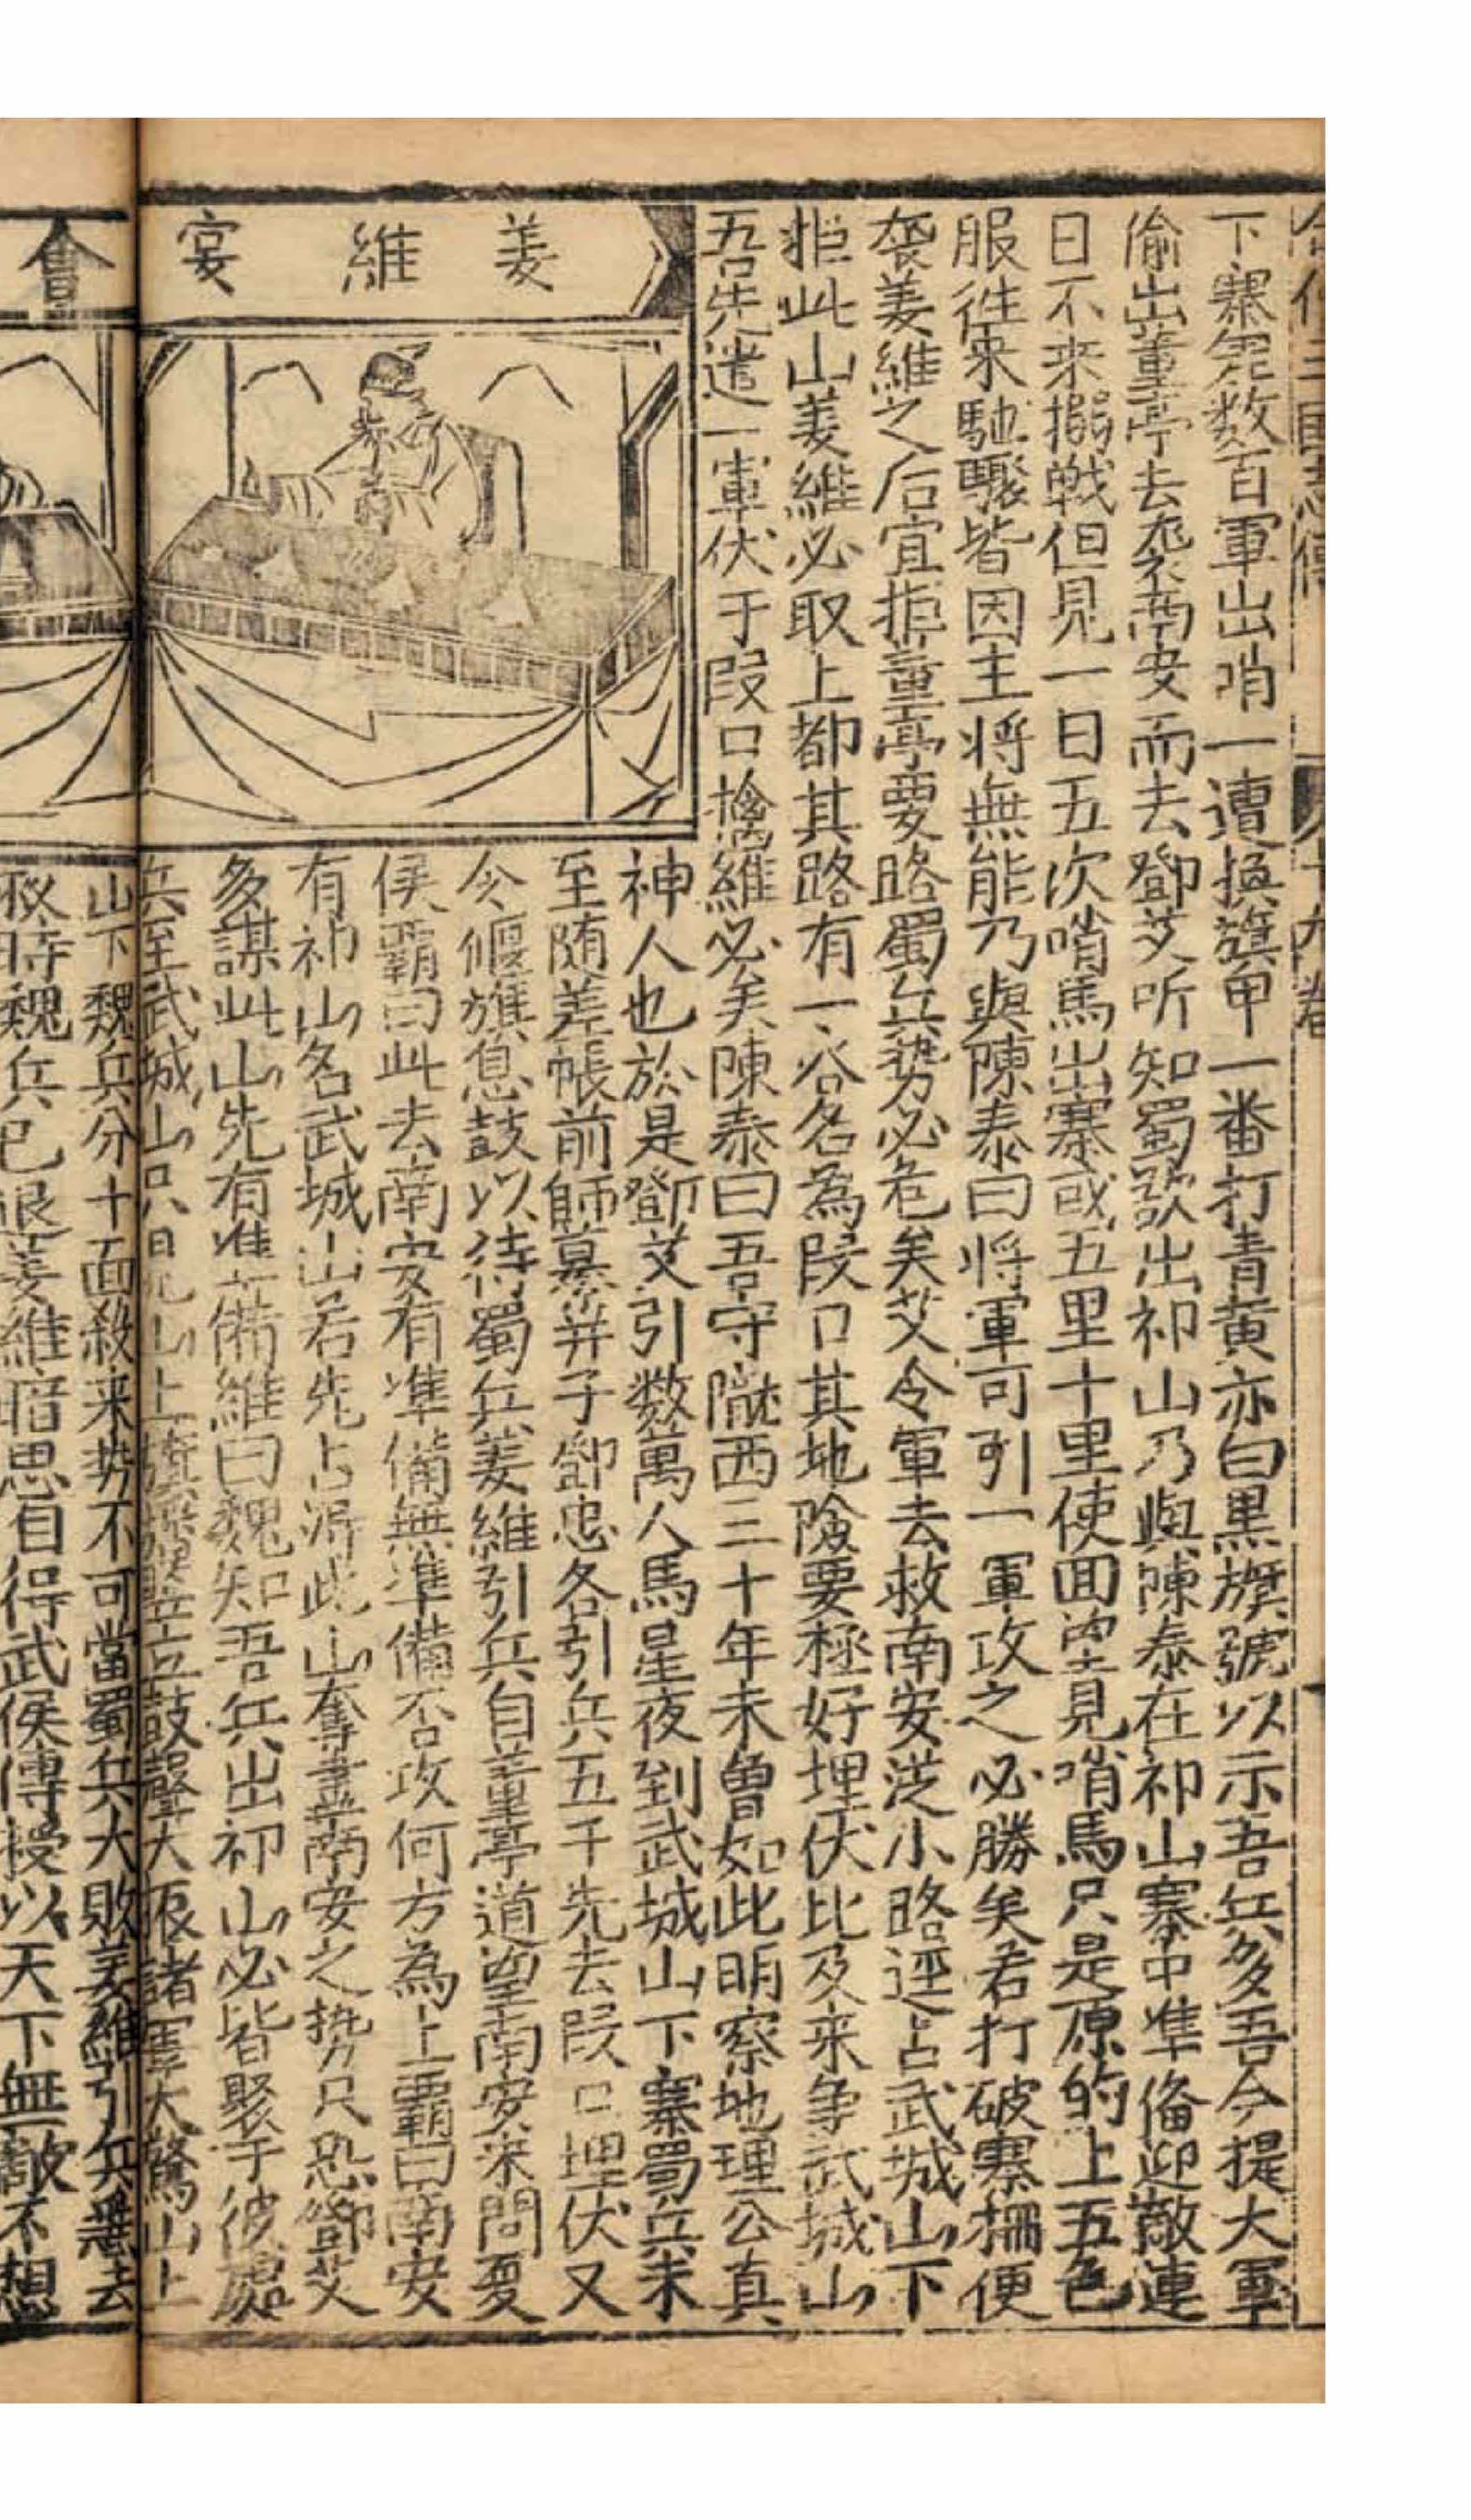 三國志傳
十九卷
下寨留数百軍出哨一遭換旗甲一番打青黄赤白黒旗號以示吾兵多吾今提大軍
偷出董亭去袭南安而去鄧艾听知蜀欲出祁山乃與陳泰在祁山寨中凖俻迎敵連
日不来搦戦但見一日五次哨馬出寨或五里十里便囬望見哨馬只是原的上五色
服徃来馳驟皆因主将無能乃與陳泰曰将軍可引一軍攻之必勝矣若打破寨柵便
袭姜維之后宜拒董亭要路蜀兵势必危矣艾令軍去救南安従小路逕占武城山下
拒此山姜維必取上都其路有一谷名為叚口其地險要極好埋伏比及来争武城山
吾先遣一軍伏于叚口擒維必矣陳泰曰吾守隴西三十年未曾如此明察地理公真
姜維宴
會
神人也於是鄧艾引数萬人馬星夜到武城山下寨蜀兵未
至随差帳前師纂并子鄧忠各引兵五千先去叚口埋伏又
令偃旗息鼓以待蜀兵姜維引兵自董亭道望南安来問夏
侯覇曰此去南安有凖備無凖備否攻何方為上覇曰南安
有祁山名武城山若先占淂此山奪盡南安之势只恐鄧艾
多謀此山先有准备備維曰魏知吾兵出祁山必皆聚于彼處
兵至武城山只見山上旗旛竪立鼓聲大振諸軍大驚山上
山下魏兵分十面殺来势不可當蜀兵大敗姜維引兵
時魏兵已退姜維暗思自得武侯傳授以天下無敵不想